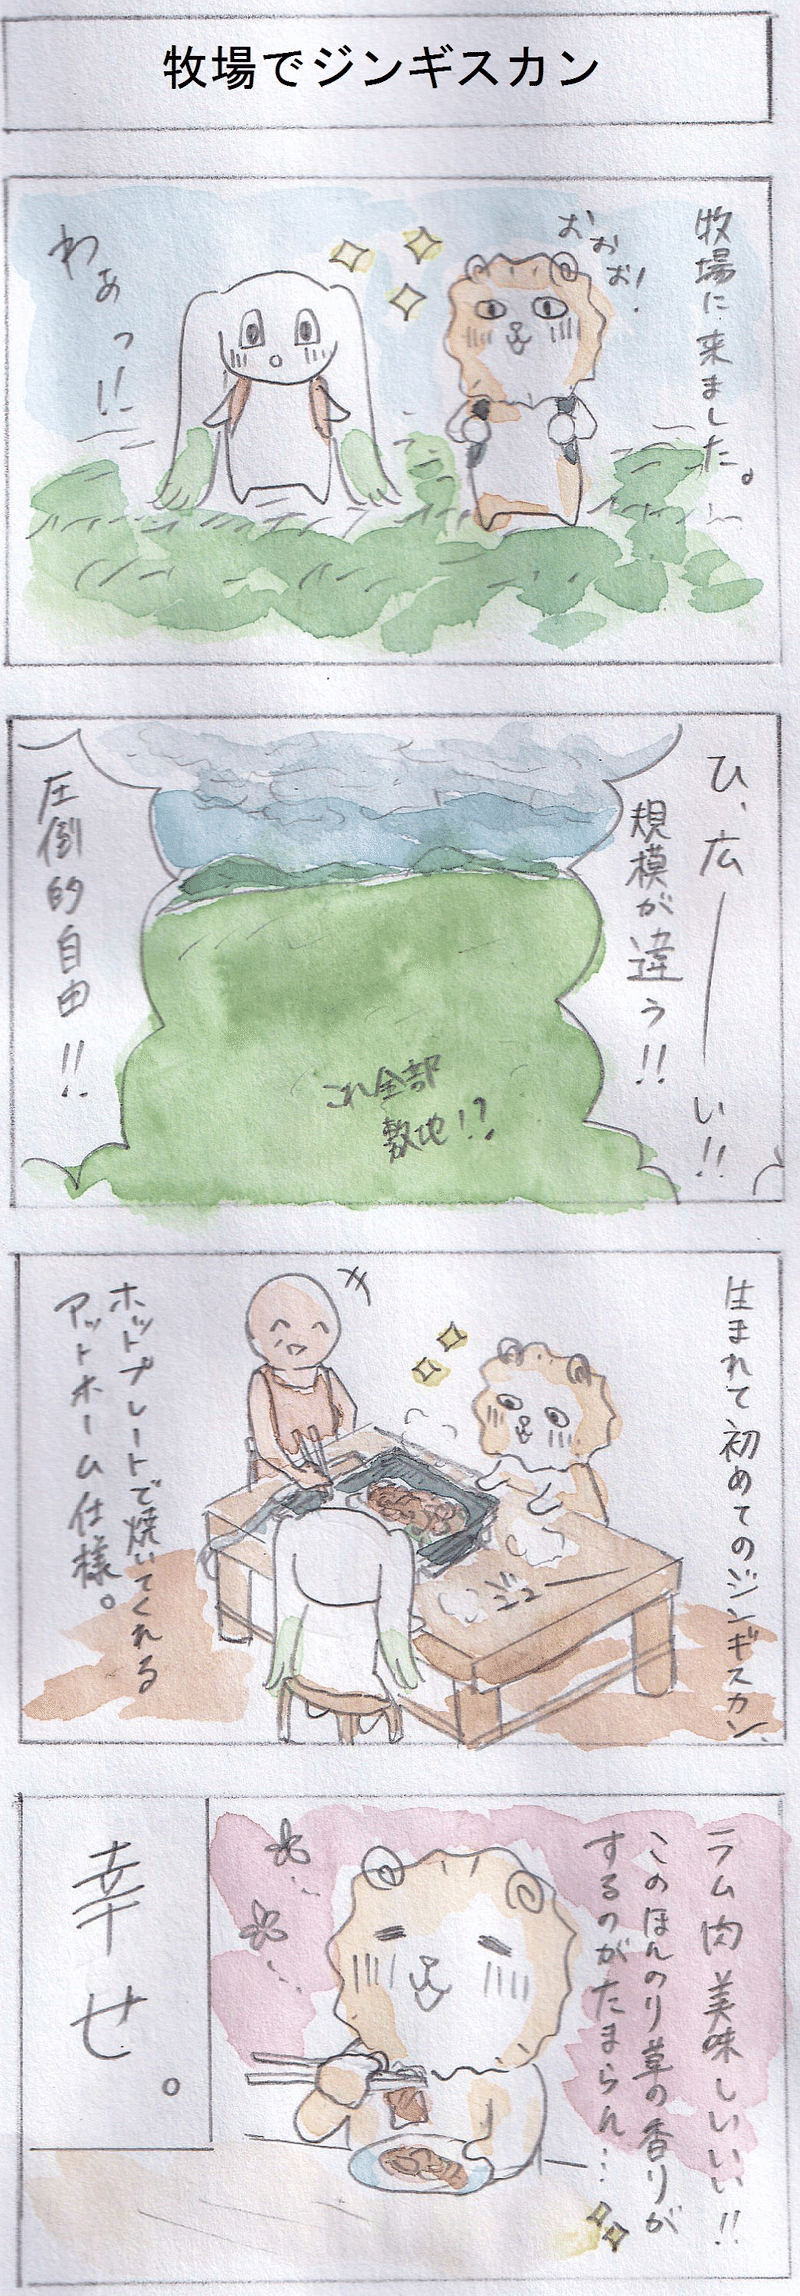 牧場でジンギスカン
牧場に来ました。
おぉぉ!
わぁっ!!
ひ、広――い!!
規模が違う!!
これ全部
敷地!?
圧倒的自由!!
生まれて初めてのジンギスカン、
ジュー
ホットプレートで焼いてくれる
アットホーム仕様。
ラム肉美味しいいい!!
このほんのり草の香りが
するのがたまらん…
幸せ。